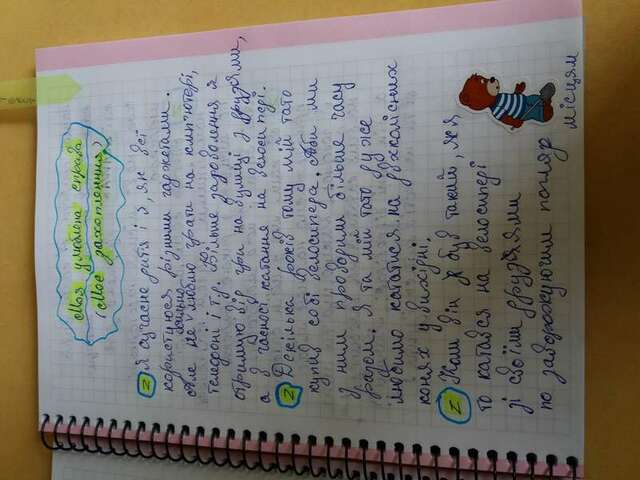 Моя улюблена справа
(Моє захоплення)
Z Я сучасне дитя і я, як всі
користуюся різними гаджетами.
Але не сильно люблю грати на комп'ютері,
телефоні і т.д. Більше задоволення я
отримую від гри на вулиці з друзями,
а в часності катання на велосипеді.
Z Декілька років тому мій тато
купив собі велосипеда. Аби ми
з ним проводили більше часу
разом. Я та мій тато дуже
любимо кататися на двхколісних
конях у вихідні.
Z Коли він був такий, як я
то катався на велосипеді
зі своїми друзями
по заворожуючим погляд
місцям